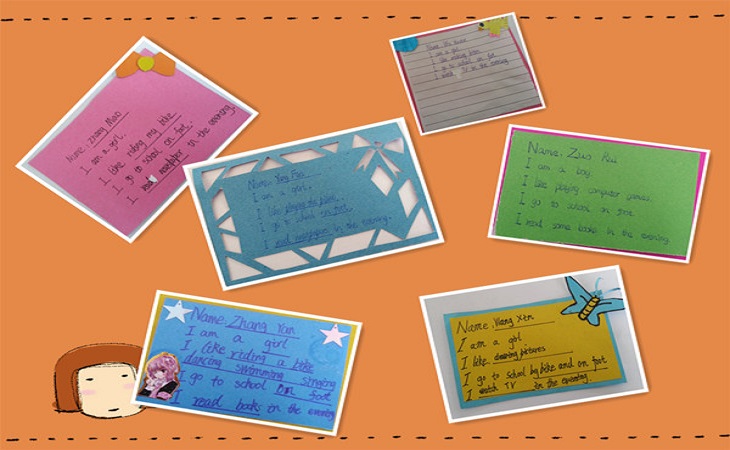 Name: Zhang Mao
I am a girl.
I like riding my bike
I go to school on foot.
I read newspaper in the evening.
I am a girl.
I go to school on foot
I watch TV in the evening.
Name: Ying Fan
I am a girl.
I like playing the
I go to school on foot.
I read newspaper in the evening.
Name: Zuo Rui
I am a boy.
I like playing computer games.
I go to school on foot
I read some books in the evening
Name: Zhang Yan
I am a girl
I like riding a bike
dancing swimming singing
I go to school on foot
I read books in the evening
Name: Wang Xin
I am a girl
I like drawing pictures
I go to school by bike and on foot
I watch TV in the evening.